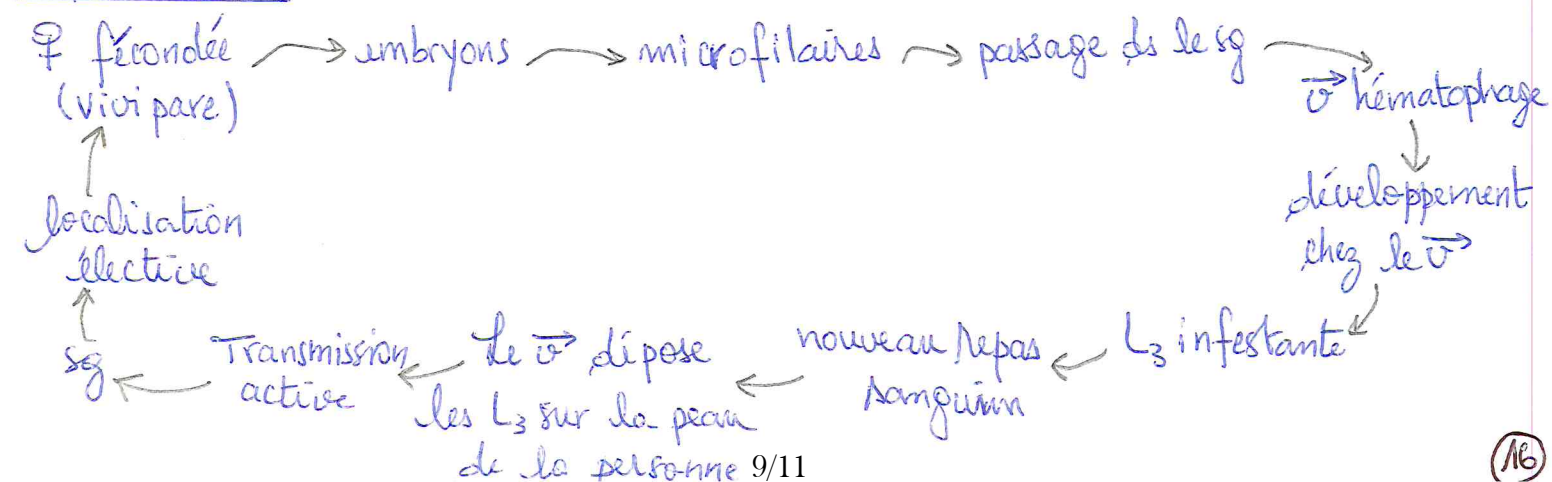 ♀ fécondée → embryons → microfilaires → passage ds le sg →
(vivipare)
v⃗ hématophage
développement
chez le v⃗
L₃ infestante
nouveau repas
sanguin
Le v⃗ dépose
les L₃ sur la peau
de la personne
Transmission
active
sg
localisation
élective
9/11
16